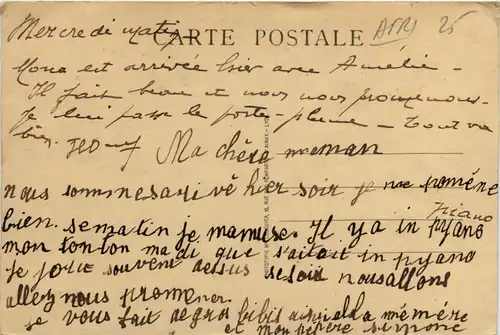 CARTE POSTALE
Mercredi matin
AFRI 25
Mona est arrivée hier avec Amélie -
Il fait beau et nous nous promenons -
Je lui passe le porte-plume - Tout va
bien.
Ma chère meman
nous sommesarivé hier soir je me promène
bien. sematin je mamuse. Il y a in pyano
Piano
mon tonton ma di que s'aitait in pyano
je joue souvent dessus sesoir nousallons
allez nous promener.
je vous fait degros bibis la mémère
et mon pépère simone